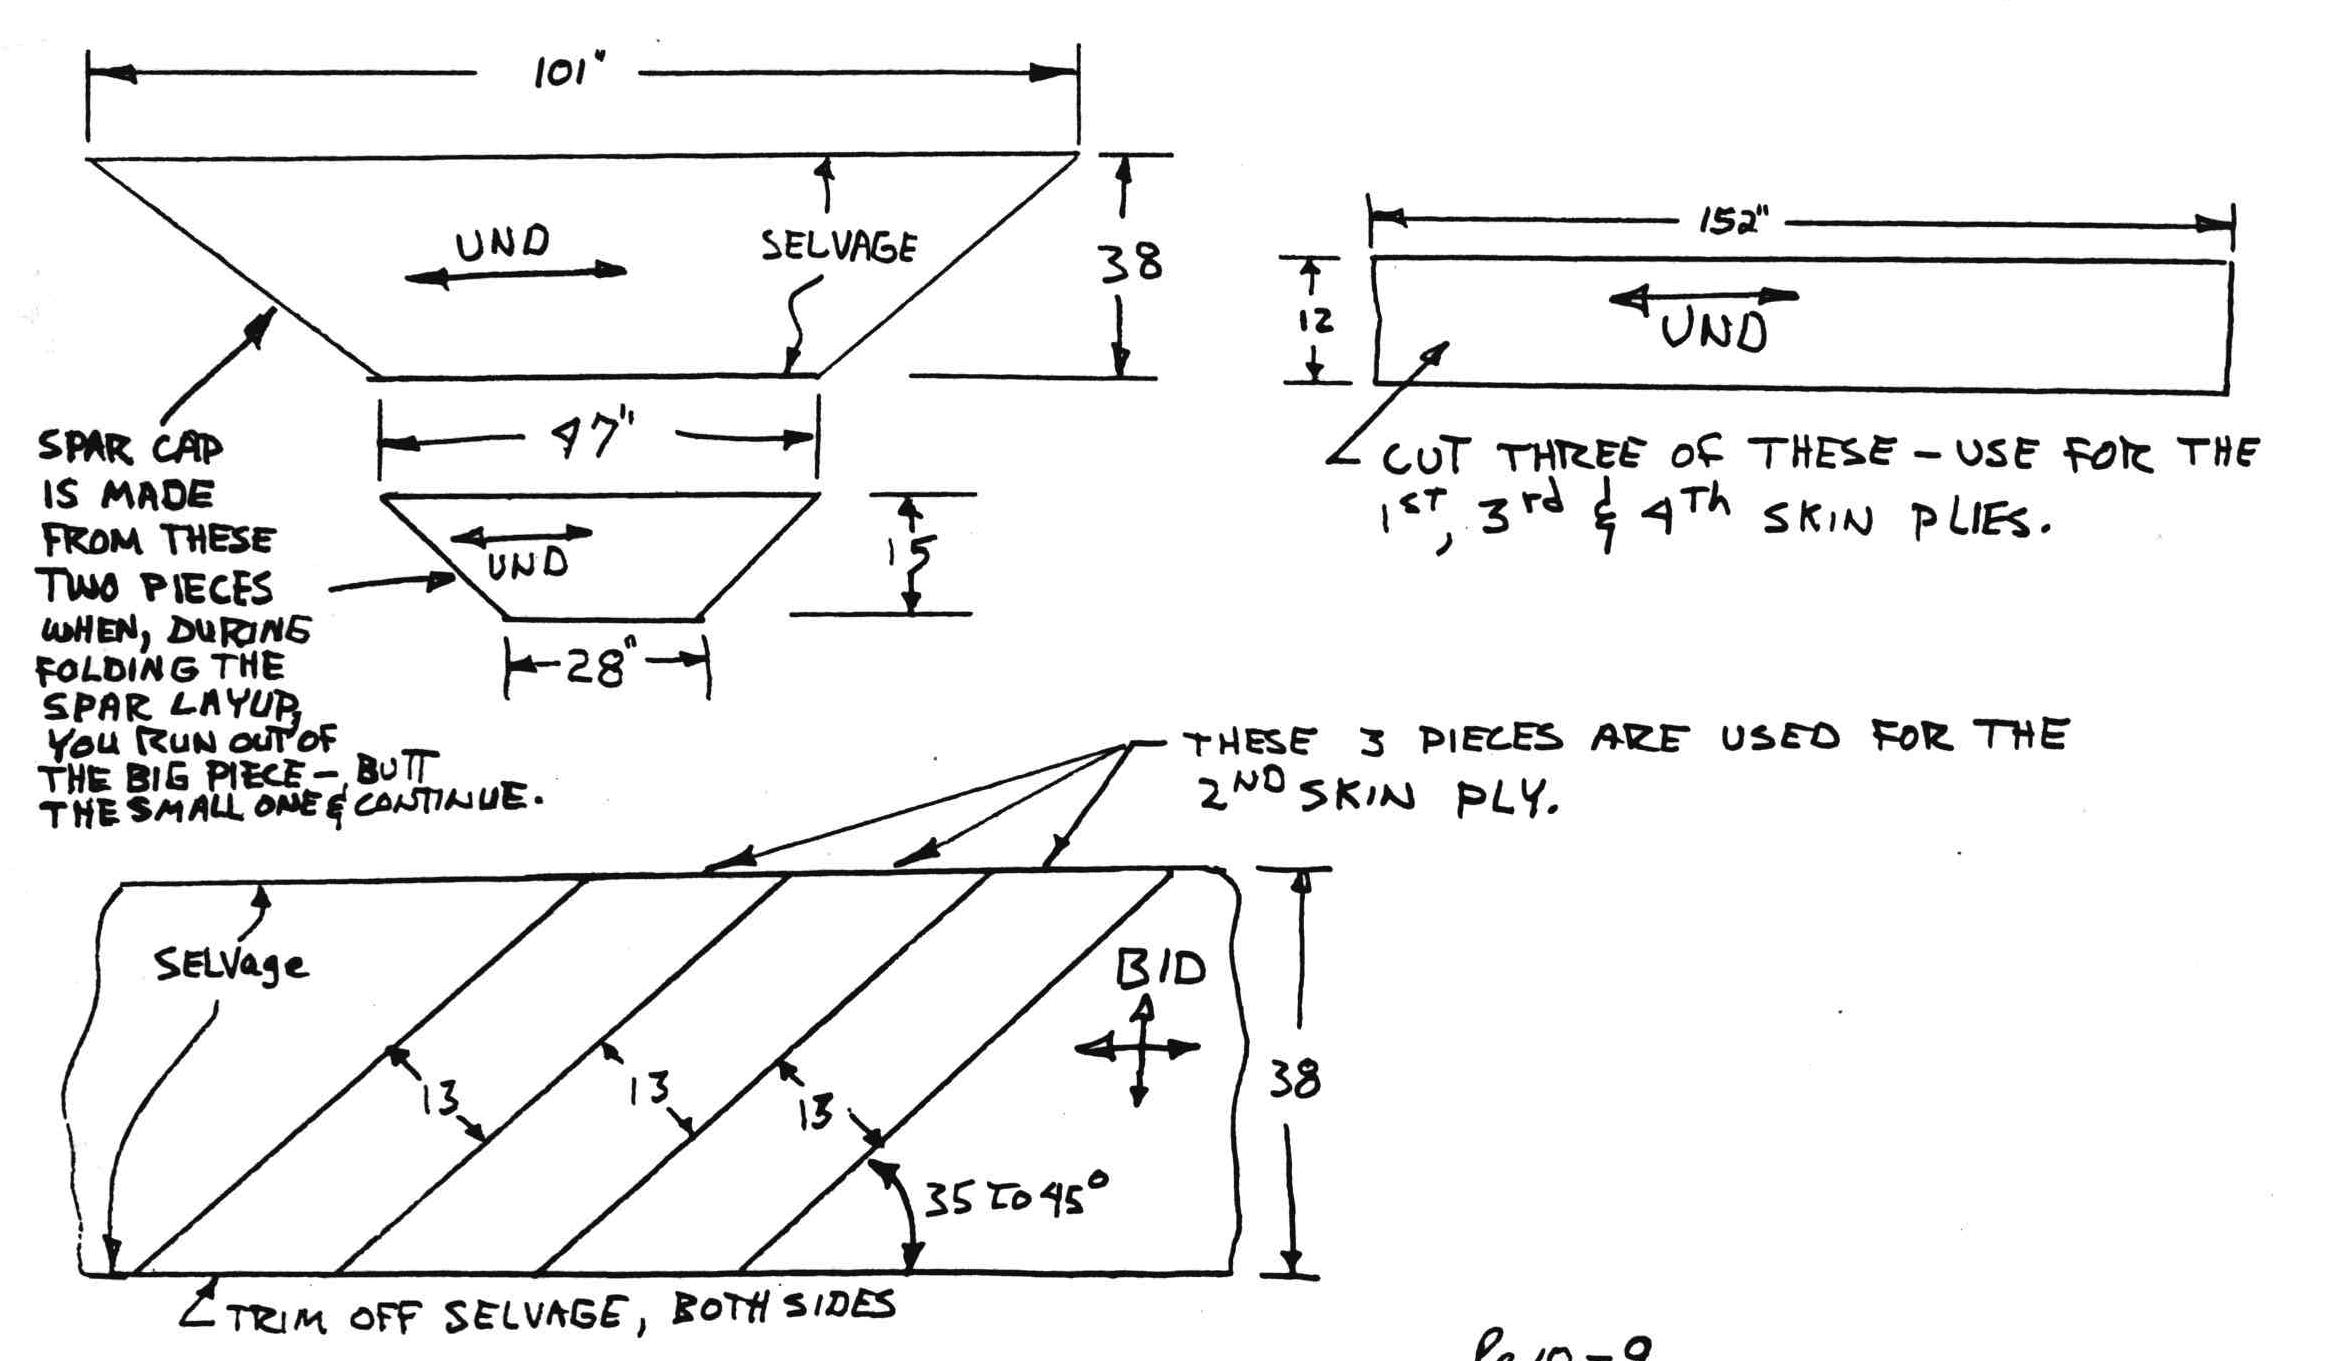 101"
UND
SELVAGE
38
152"
12
UND
47"
SPAR CAP
IS MADE
FROM THESE
TWO PIECES
WHEN, DURING
FOLDING THE
SPAR LAYUP,
YOU RUN OUT OF
THE BIG PIECE – BUTT
THE SMALL ONE & CONTINUE.
UND
15
28"
CUT THREE OF THESE – USE FOR THE
1ST, 3rd & 4Th SKIN PLIES.
THESE 3 PIECES ARE USED FOR THE
2ND SKIN PLY.
SELVage
BID
13
13
13
38
35 TO 45°
TRIM OFF SELVAGE, BOTH SIDES